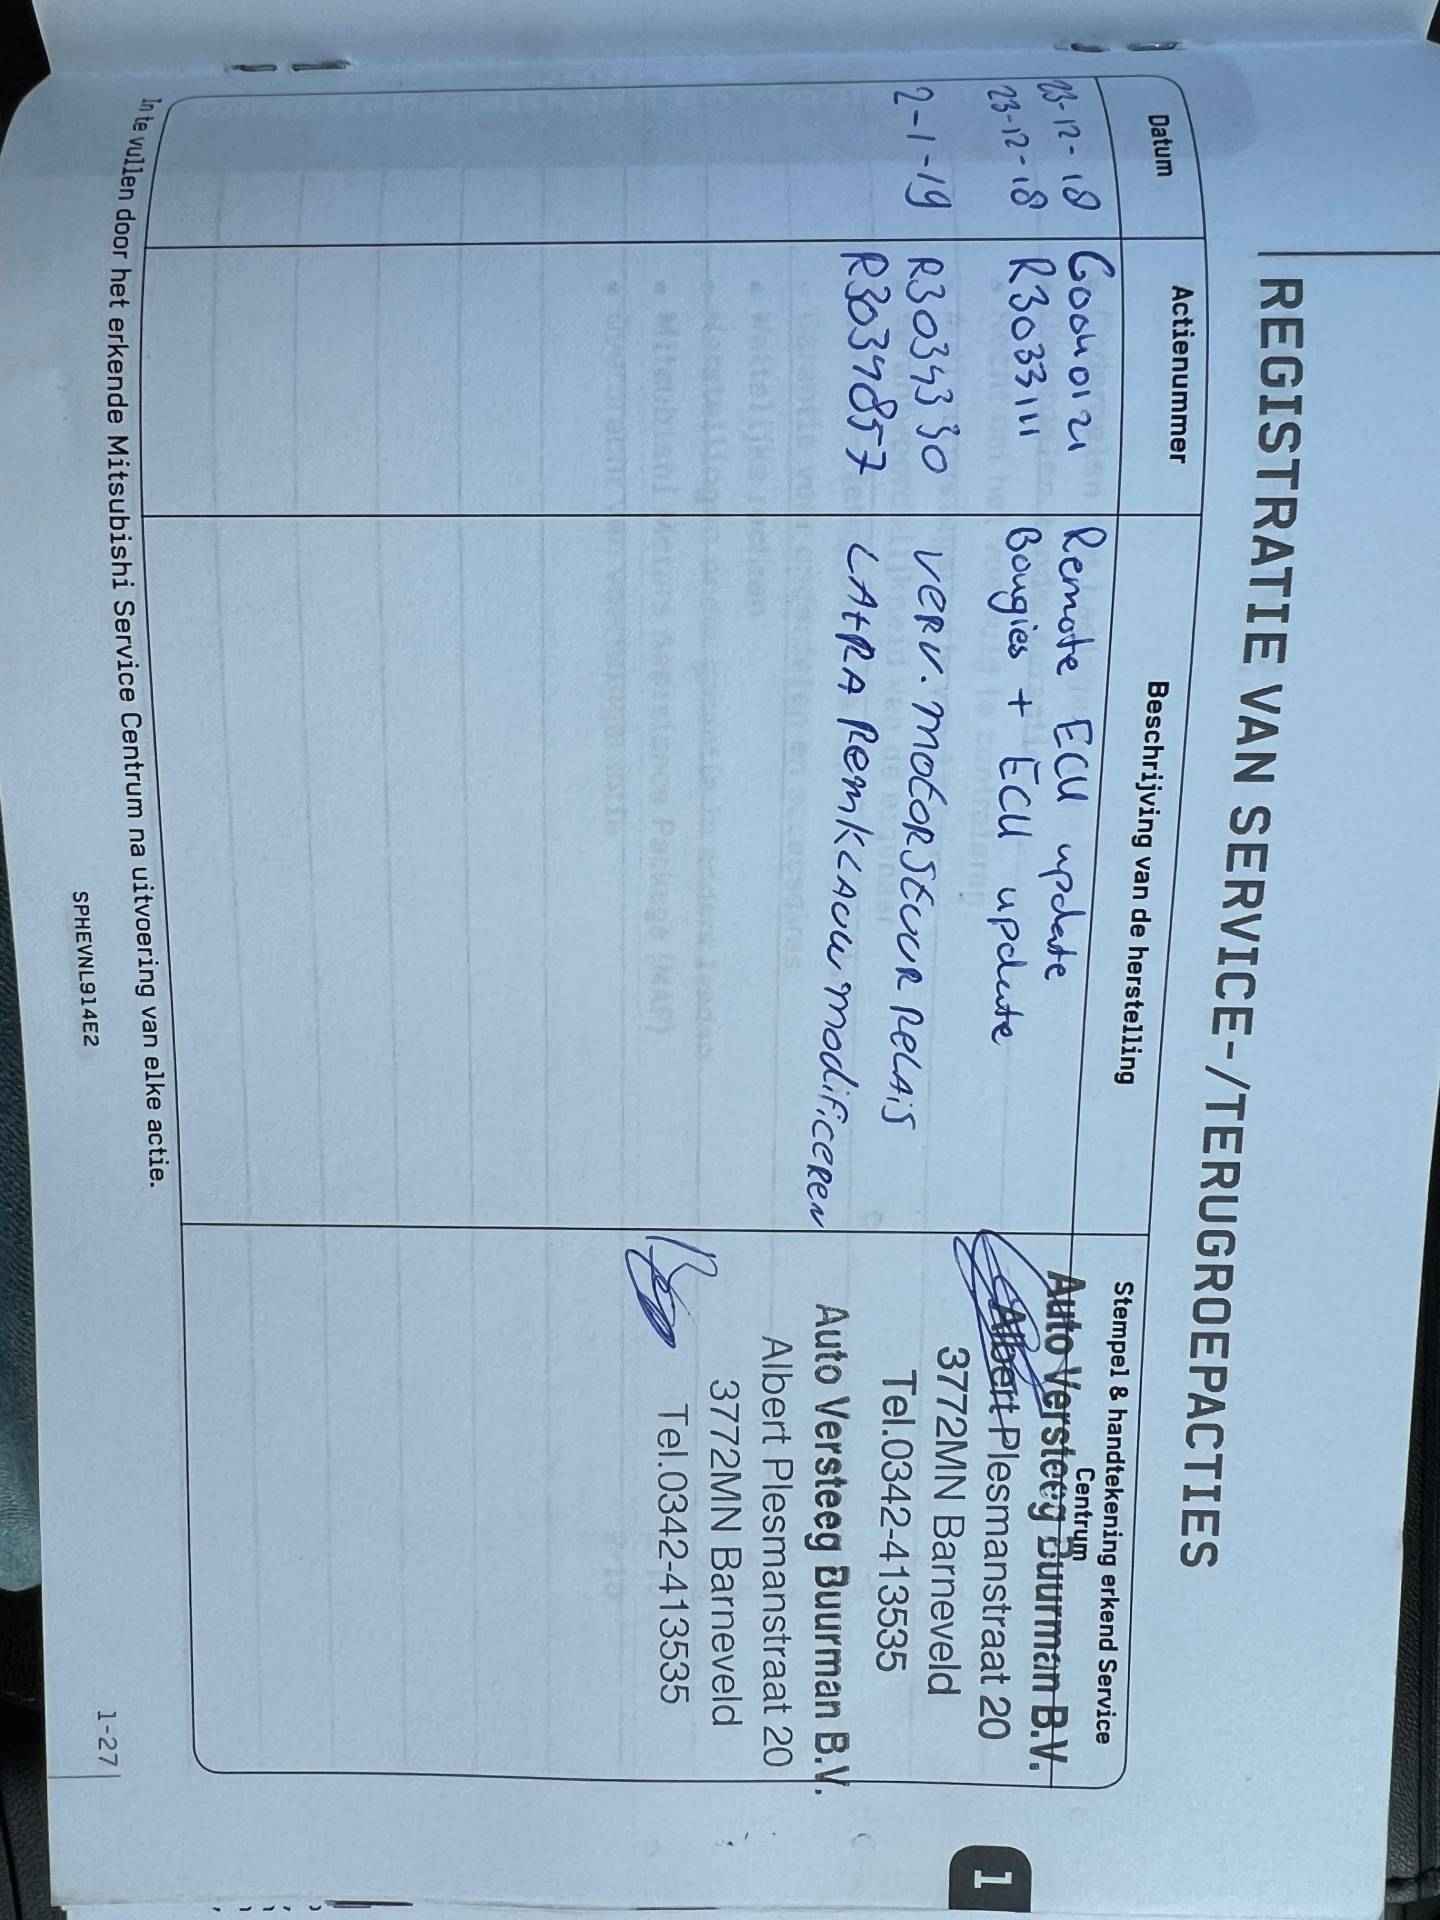 REGISTRATIE VAN SERVICE-/TERUGROEPACTIES
Datum
Actienummer
Beschrijving van de herstelling
Stempel & handtekening erkend Service
Centrum
23-12-18 Remote ECU update
23-12-18 R3033111 Bougies + ECU update
2-1-19 R3034330 VERV. MOTORSTUUR RELAIS
R3034857 LA+RA REMKLAUW MODIFICEREN
Auto Versteeg Buurman B.V.
Albert Plesmanstraat 20
3772MN Barneveld
Tel.0342-413535
Auto Versteeg Buurman B.V.
Albert Plesmanstraat 20
3772MN Barneveld
Tel.0342-413535
In te vullen door het erkende Mitsubishi Service Centrum na uitvoering van elke actie.
SPHEVNL914E2
1-27
1